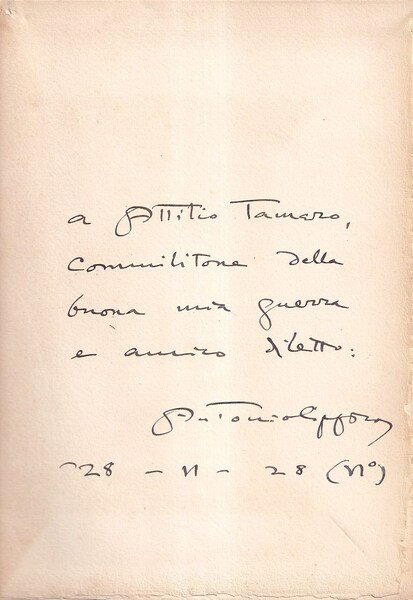 a Attilio Tamaro,
commilitone della
buona mia guerra
e amico diletto:
Antonio Cippico
28 - VI - 28 (VI°)